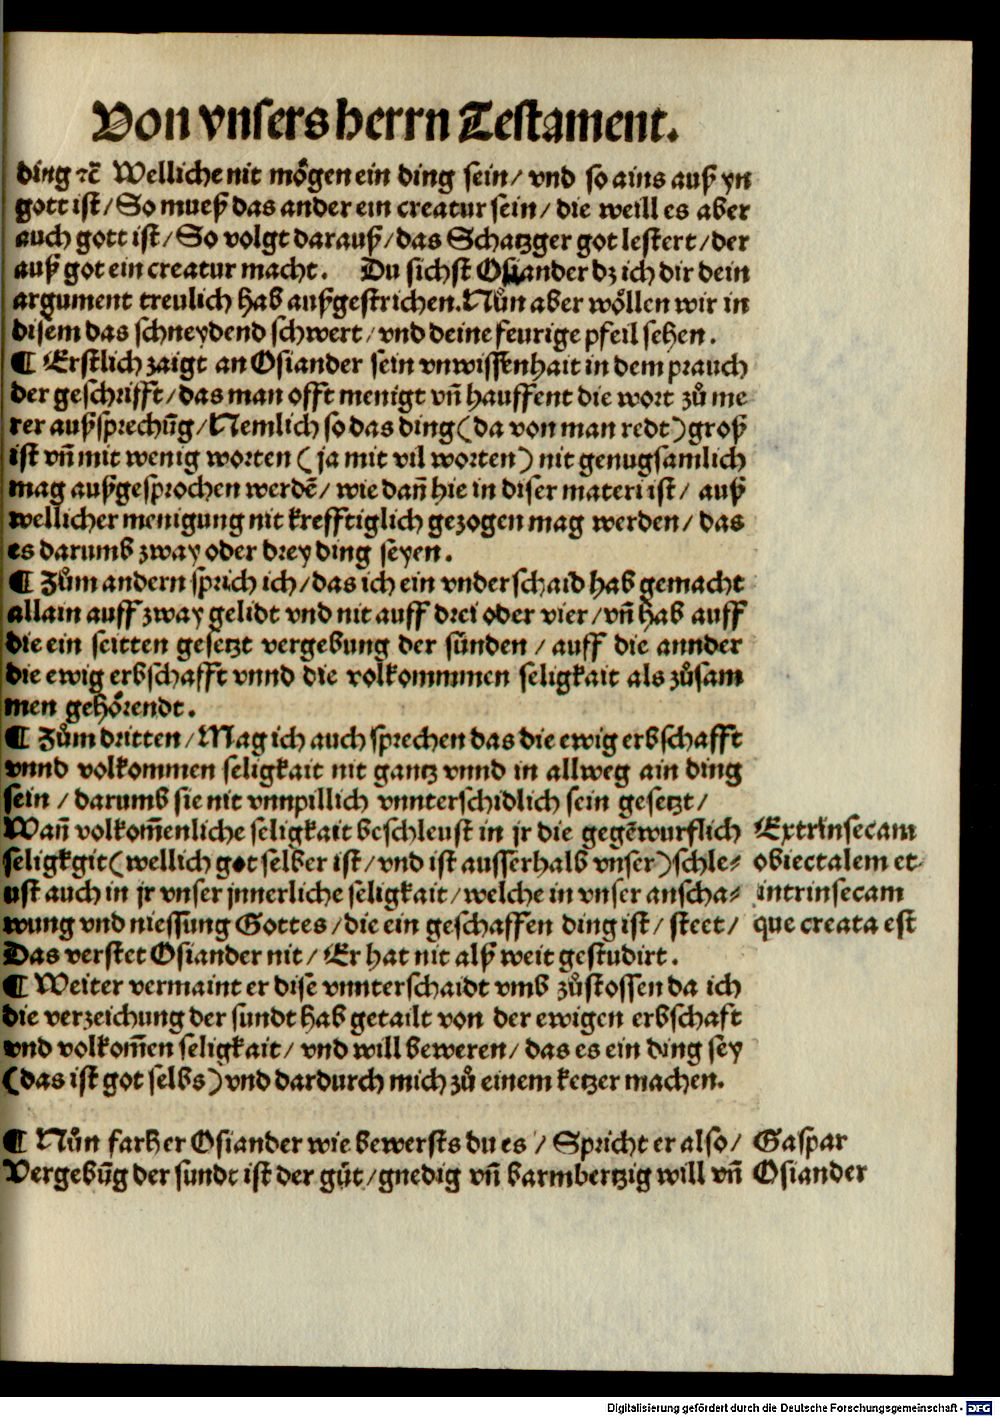 Von vnsers herrn Testament.
ding ꝛc̄ Welliche nit mögen ein ding sein/ vnd so ains auß yn
gott ist/ So mueß das ander ein creatur sein/ die weill es aber
auch gott ist/ So volgt darauß/ das Schatzger got lestert/ der
auß got ein creatur macht. Du sichst Osiander dz ich dir dein
argument treulich hab außgestrichen. Nůn aber wöllen wir in
disem das schneydend schwert/ vnd deine feurige pfeil sehen.
¶ Erstlich zaigt an Osiander sein vnwissenhait in dem prauch
der geschrifft/ das man offt menigt vn̄ hauffent die wort zů me
rer außsprechūg/ Nemlich so das ding (da von man redt) groß
ist vn̄ mit wenig worten (ja mit vil worten) nit genugsamlich
mag außgesprochen werdē/ wie dan̄ hie in diser materi ist/ auß
wellicher menigung nit krefftiglich gezogen mag werden/ das
es darumb zway oder drey ding seyen.
¶ Zům andern sprich ich/ das ich ein vnderschaid hab gemacht
allain auff zway gelidt vnd nit auff drei oder vier/ vn̄ hab auff
die ein seitten gesetzt vergebung der sünden/ auff die annder
die ewig erbschafft vnnd die volkommnen seligkait als zůsam
men gehörendt.
¶ Zům dritten/ Mag ich auch sprechen das die ewig erbschafft
vnnd volkommen seligkait nit gantz vnnd in allweg ain ding
sein/ darumb sie nit vnnpillich vnnterschidlich sein gesetzt/
Wan̄ volkom̄enliche seligkait beschleust in jr die gegēwurflich Extrinsecam
seligkgit (wellich got selber ist/ vnd ist ausserhalb vnser) schle⸗ obiectalem et
ust auch in jr vnser jnnerliche seligkait/ welche in vnser anscha⸗ intrinsecam
wung vnd niessung Gottes/ die ein geschaffen ding ist/ steet/ que creata est
Das verstet Osiander nit/ Er hat nit alß weit gestudirt.
¶ Weiter vermaint er dise vnnterschaidt vmb zůstossen da ich
die verzeichung der sundt hab getailt von der ewigen erbschaft
vnd volkom̄en seligkait/ vnd will beweren/ das es ein ding sey
(das ist got selbs) vnd dardurch mich zů einem ketzer machen.
¶ Nůn farh er Osiander wie bewersts du es/ Spricht er also/ Gaspar
Vergebūg der sundt ist der gůt/ gnedig vn̄ barmhertzig will vn̄ Osiander
Digitalisierung gefördert durch die Deutsche Forschungsgemeinschaft - DFG